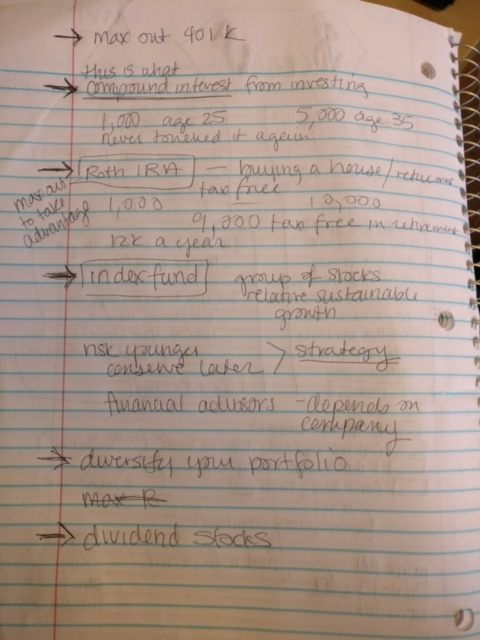 → max out 401K
this is what
→ compound interest from investing
1,000 age 25 5,000 age 35
never touched it again
→ Roth IRA — buying a house/retirement
tax free
max out
to take
advantage
1,000 10,000
9,000 tax free in retirement
12k a year
→ index fund group of stocks
relative sustainable
growth
risk younger
conserve later > strategy
financial advisors - depends on
company
→ diversify your portfolio
max R
→ dividend stocks